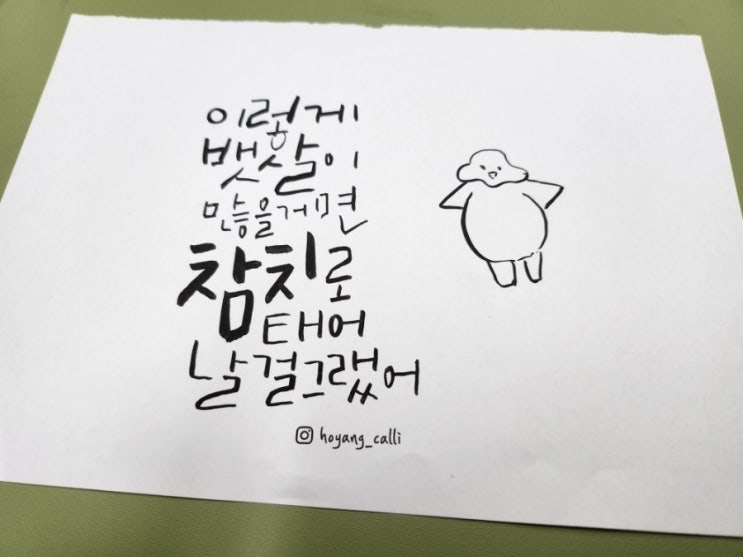 이렇게
뱃살이
많을거면
참치로
태어
날걸그랬어
hoyang_calli